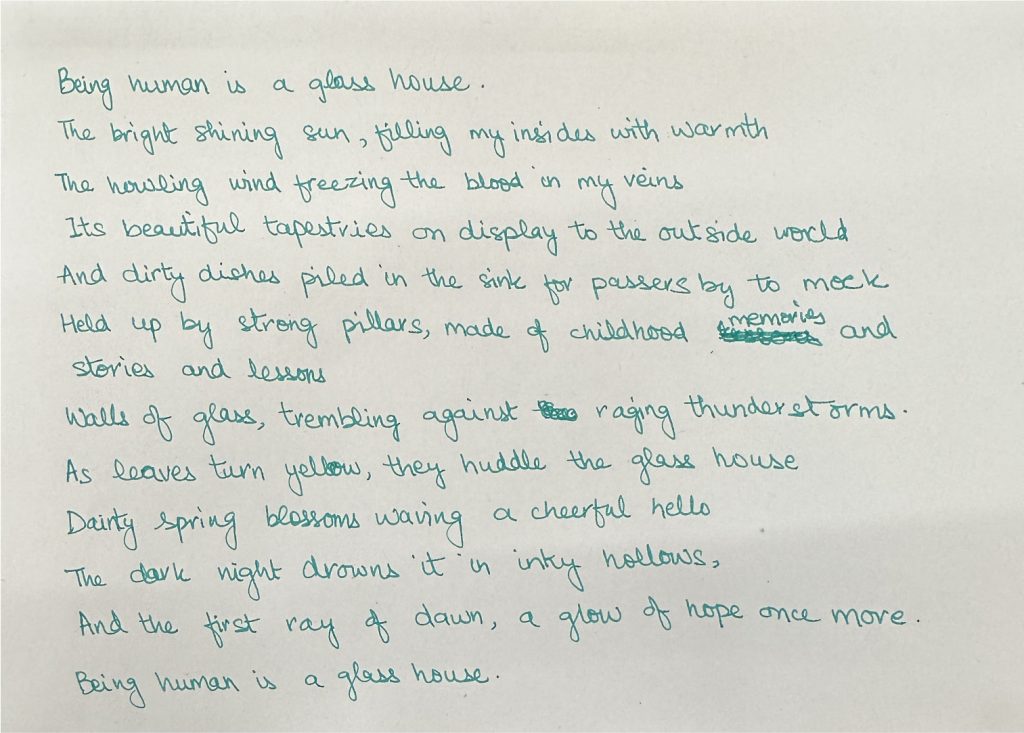 Being human is a glass house.
The bright shining sun, filling my insides with warmth
The howling wind freezing the blood in my veins
Its beautiful tapestries on display to the outside world
And dirty dishes piled in the sink for passers by to mock
Held up by strong pillars, made of childhood memories and
stories and lessons
Walls of glass, trembling against raging thunderstorms.
As leaves turn yellow, they huddle the glass house
Dainty spring blossoms waving a cheerful hello
The dark night drowns it in inky hollows,
And the first ray of dawn, a glow of hope once more.
Being human is a glass house.